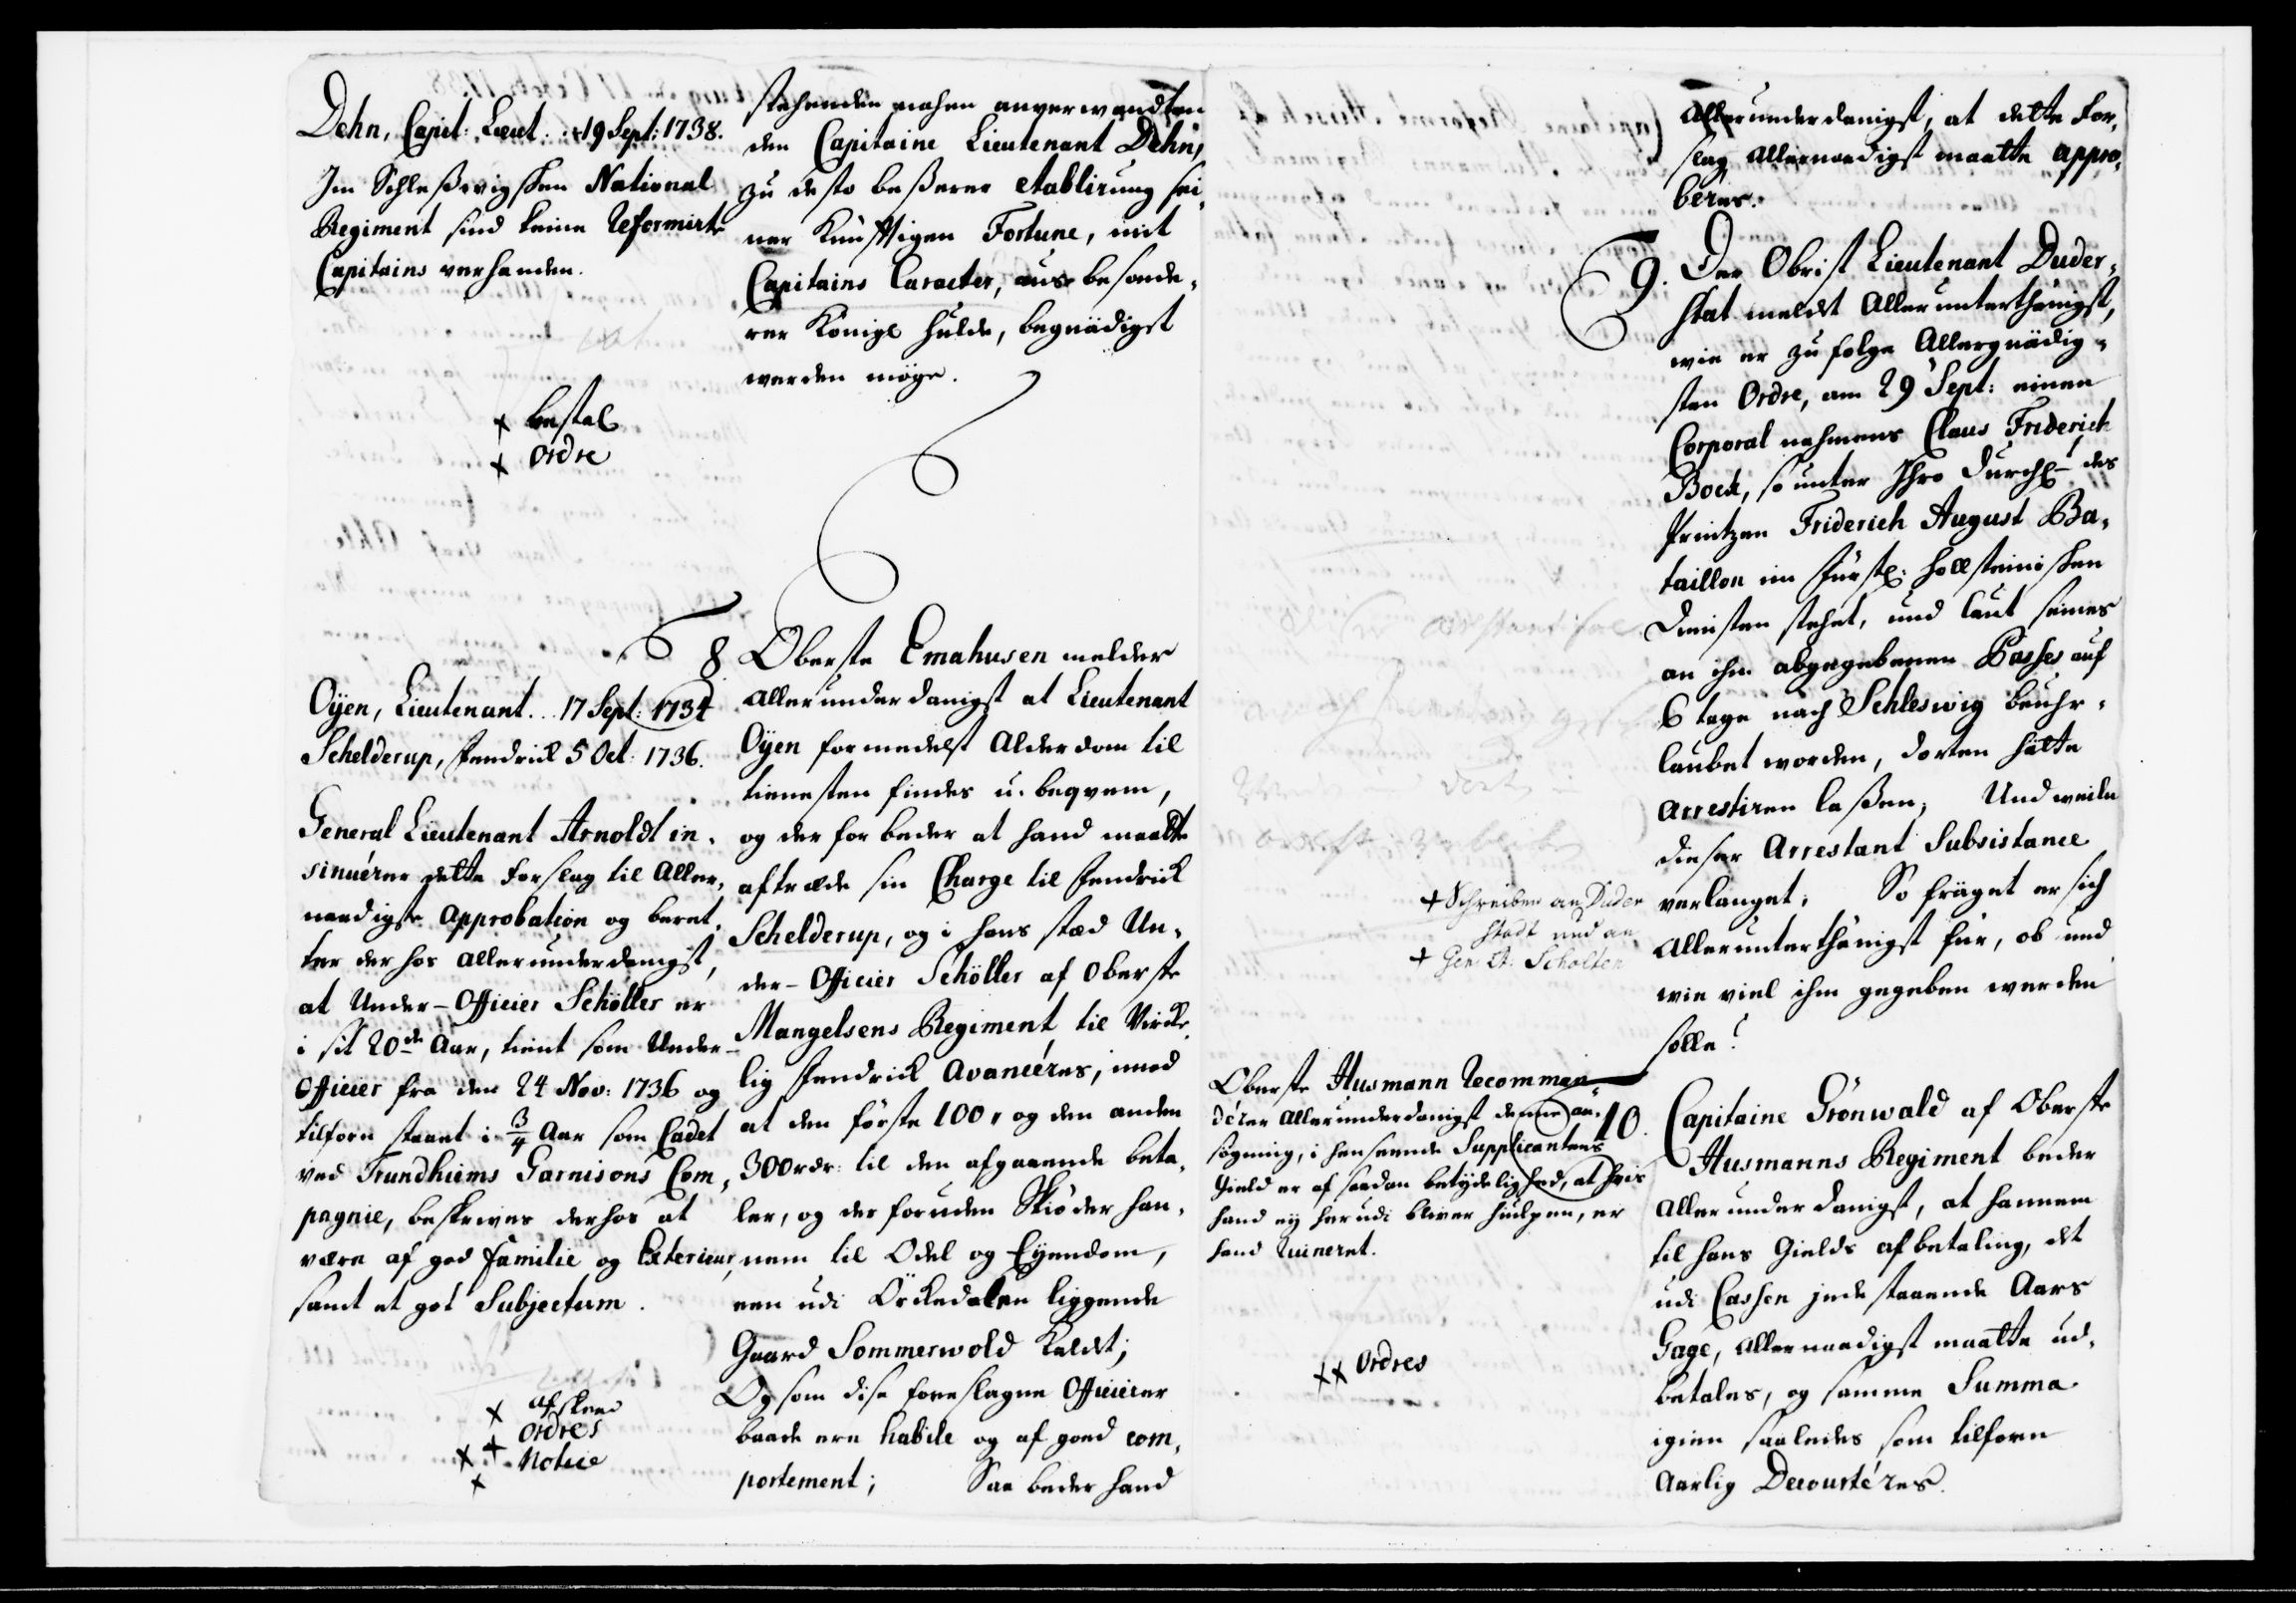 Dehn, Capit: Lieut: 19 Sept: 1738.
Im Schleßwigschen National
Regiment sind keine Reformirte
Capitains verhanden.
x bestal
x Ordre
stehenden nahen anverwandten
den Capitaine Lieutenant Dehn,
zu desto beßerer etablirung sei,
ner Künfftigen Fortune, mit
Capitains Caracter, aus besonde,
rer Königl Hulde, begnädiget
werden möge.
8
Oÿen, Lieutenant... 17 Sept: 1734
Schelderup, Fendrick 5 Oct: 1736.
General Lieutenant Arnoldt in,
sinuérer dette Forslag til Aller,
naadigste Approbation og beret,
ter der hos allerunderdanigst,
at Under-Officier Schöller er
i sit 20de Aar, tient som Under-
Officier fra den 24 Nov: 1736 og
tilforn staaet i 3/4 Aar som Cadet
ved Trundhiems Garnisons Com,
pagnie, beskrives derhos at
være af god Familie og Exterieur,
samt et got Subjectum.
x afskeed
x + Ordres
x Notice
Oberste Emahusen melder
allerunderdanigst at Lieutenant
Oÿen formedelst Alderdom til
tienesten findes u-beqvem,
og der for beder at hand maatte
aftræde sin Charge til Fendrick
Schelderup, og i hans stæd Un,
der-Officier Schöller af Oberste
Mangelsens Regiment til Virke,
lig Fendrick Avancéres, imod
at den förste 100, og den anden
300 rdr: til den afgaaende beta,
ler, og der foruden Skiöder han,
nem til Odel og Eÿendom,
een udi Örkedalen liggende
Gaard Sommerwold kaldt;
Og som dise foreslagne Officierer
baade ere habile og af goed com,
portement; Saa beder hand
allerunderdanigst, at dette For,
slag allernaadigst maatte appro,
béres.
9. Der Obrist Lieutenant Duder,
stat meldet Allerunterthänigst,
wie er zufolge Allergnädig,
sten Ordre, am 29 Sept: einen
Corporal nahmens Claus Friderich
Bock, so unter Ihro Durchl des
Printzen Friderich August Ba,
taillon im Fürstl: Hollsteinischen
Diensten stehet, und laut seines
an ihm abgegebenen Passes auf
6 tage nach Schleswig beuhr,
laubet worden, dorten hätte
arrestiren laßen; Und weile
dieser Arrestant Subsistance
verlanget; So fräget er sich
allerunterthänigst für, ob und
wie viel ihm gegeben werden
solle?
+ Schreiben an Duder
stadt und an
+ Gen: Lt: Scholten
Oberste Husmann Recomman,
dérer allerunderdanigst denne an,
søgning, i henseende Supplicantens
Gield er af saadan betÿdelighed, at hvis
hand eÿ herudi bliver hiulpen, er
hand Ruineret.
xx Ordres
10. Capitaine Grönwald af Oberste
Husmanns Regiment beder
allerunderdanigst, at hannem
til hans Gields afbetaling, det
udi Cassen inde staaende Aars
Gage, allernaadigst maatte ud,
betales, og samme Summa
igien saaledes som tilforn
aarlig Decourtéres.